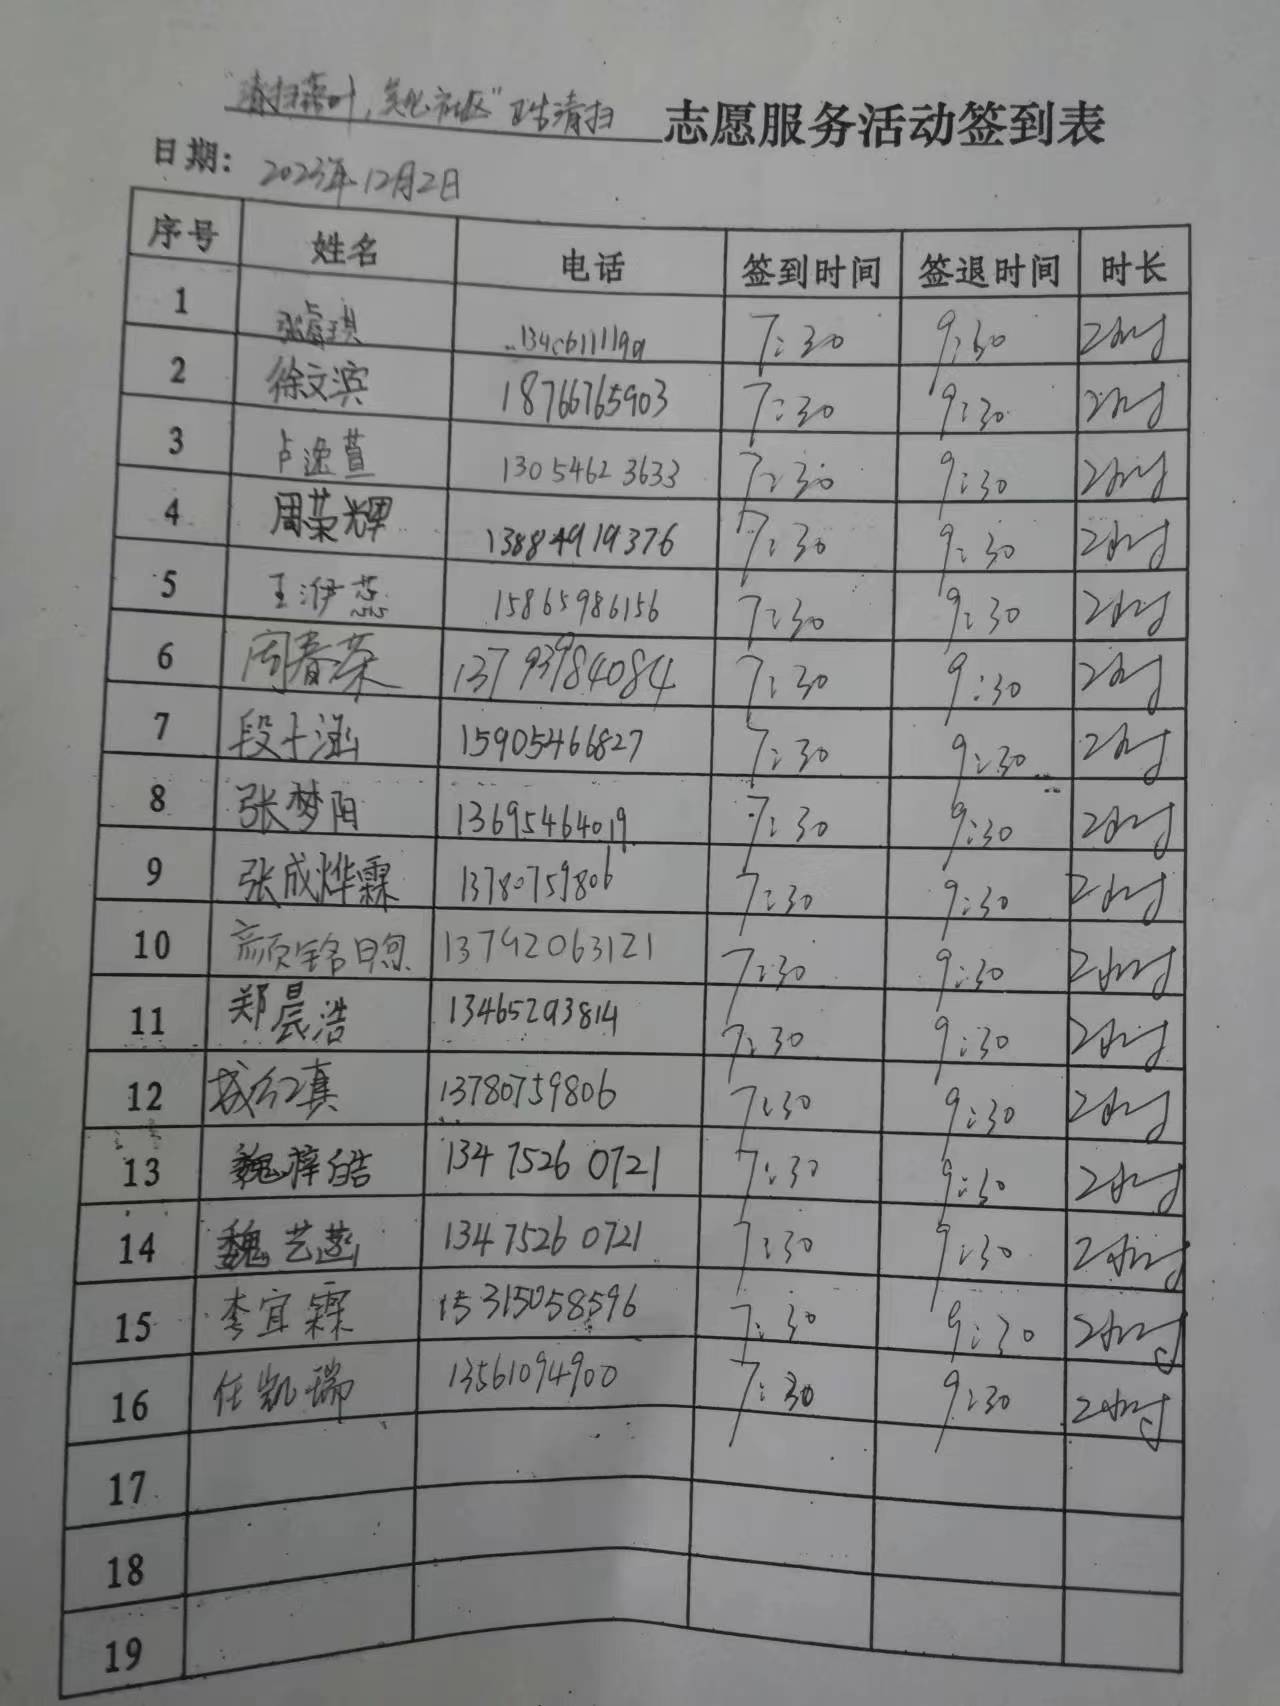 "清扫落叶，美化社区"卫生清扫 志愿服务活动签到表
日期： 2023年12月2日
序号 姓名 电话 签到时间 签退时间 时长
1 张睿琪 7:30 9:30 2小时
2 徐文滨 18766765903 7:30 9:30 2小时
3 卢逸萱 13054623633 7:30 9:30 2小时
4 周荣辉 13884919376 7:30 9:30 2小时
5 王洢蕊 15865986156 7:30 9:30 2小时
6 周春荣 13793984084 7:30 9:30 2小时
7 段于涵 15905466827 7:30 9:30 2小时
8 张梦阳 13695464019 7:30 9:30 2小时
9 张成烨霖 13780759806 7:30 9:30 2小时
10 颜铭昫 13792063121 7:30 9:30 2小时
11 郑晨浩 13465293814 7:30 9:30 2小时
12 成红真 13780759806 7:30 9:30 2小时
13 魏梓皓 13475260721 7:30 9:30 2小时
14 魏艺菡 13475260721 7:30 9:30 2小时
15 李宜霖 15315058596 7:30 9:30 2小时
16 任凯瑞 13561094900 7:30 9:30 2小时
17
18
19